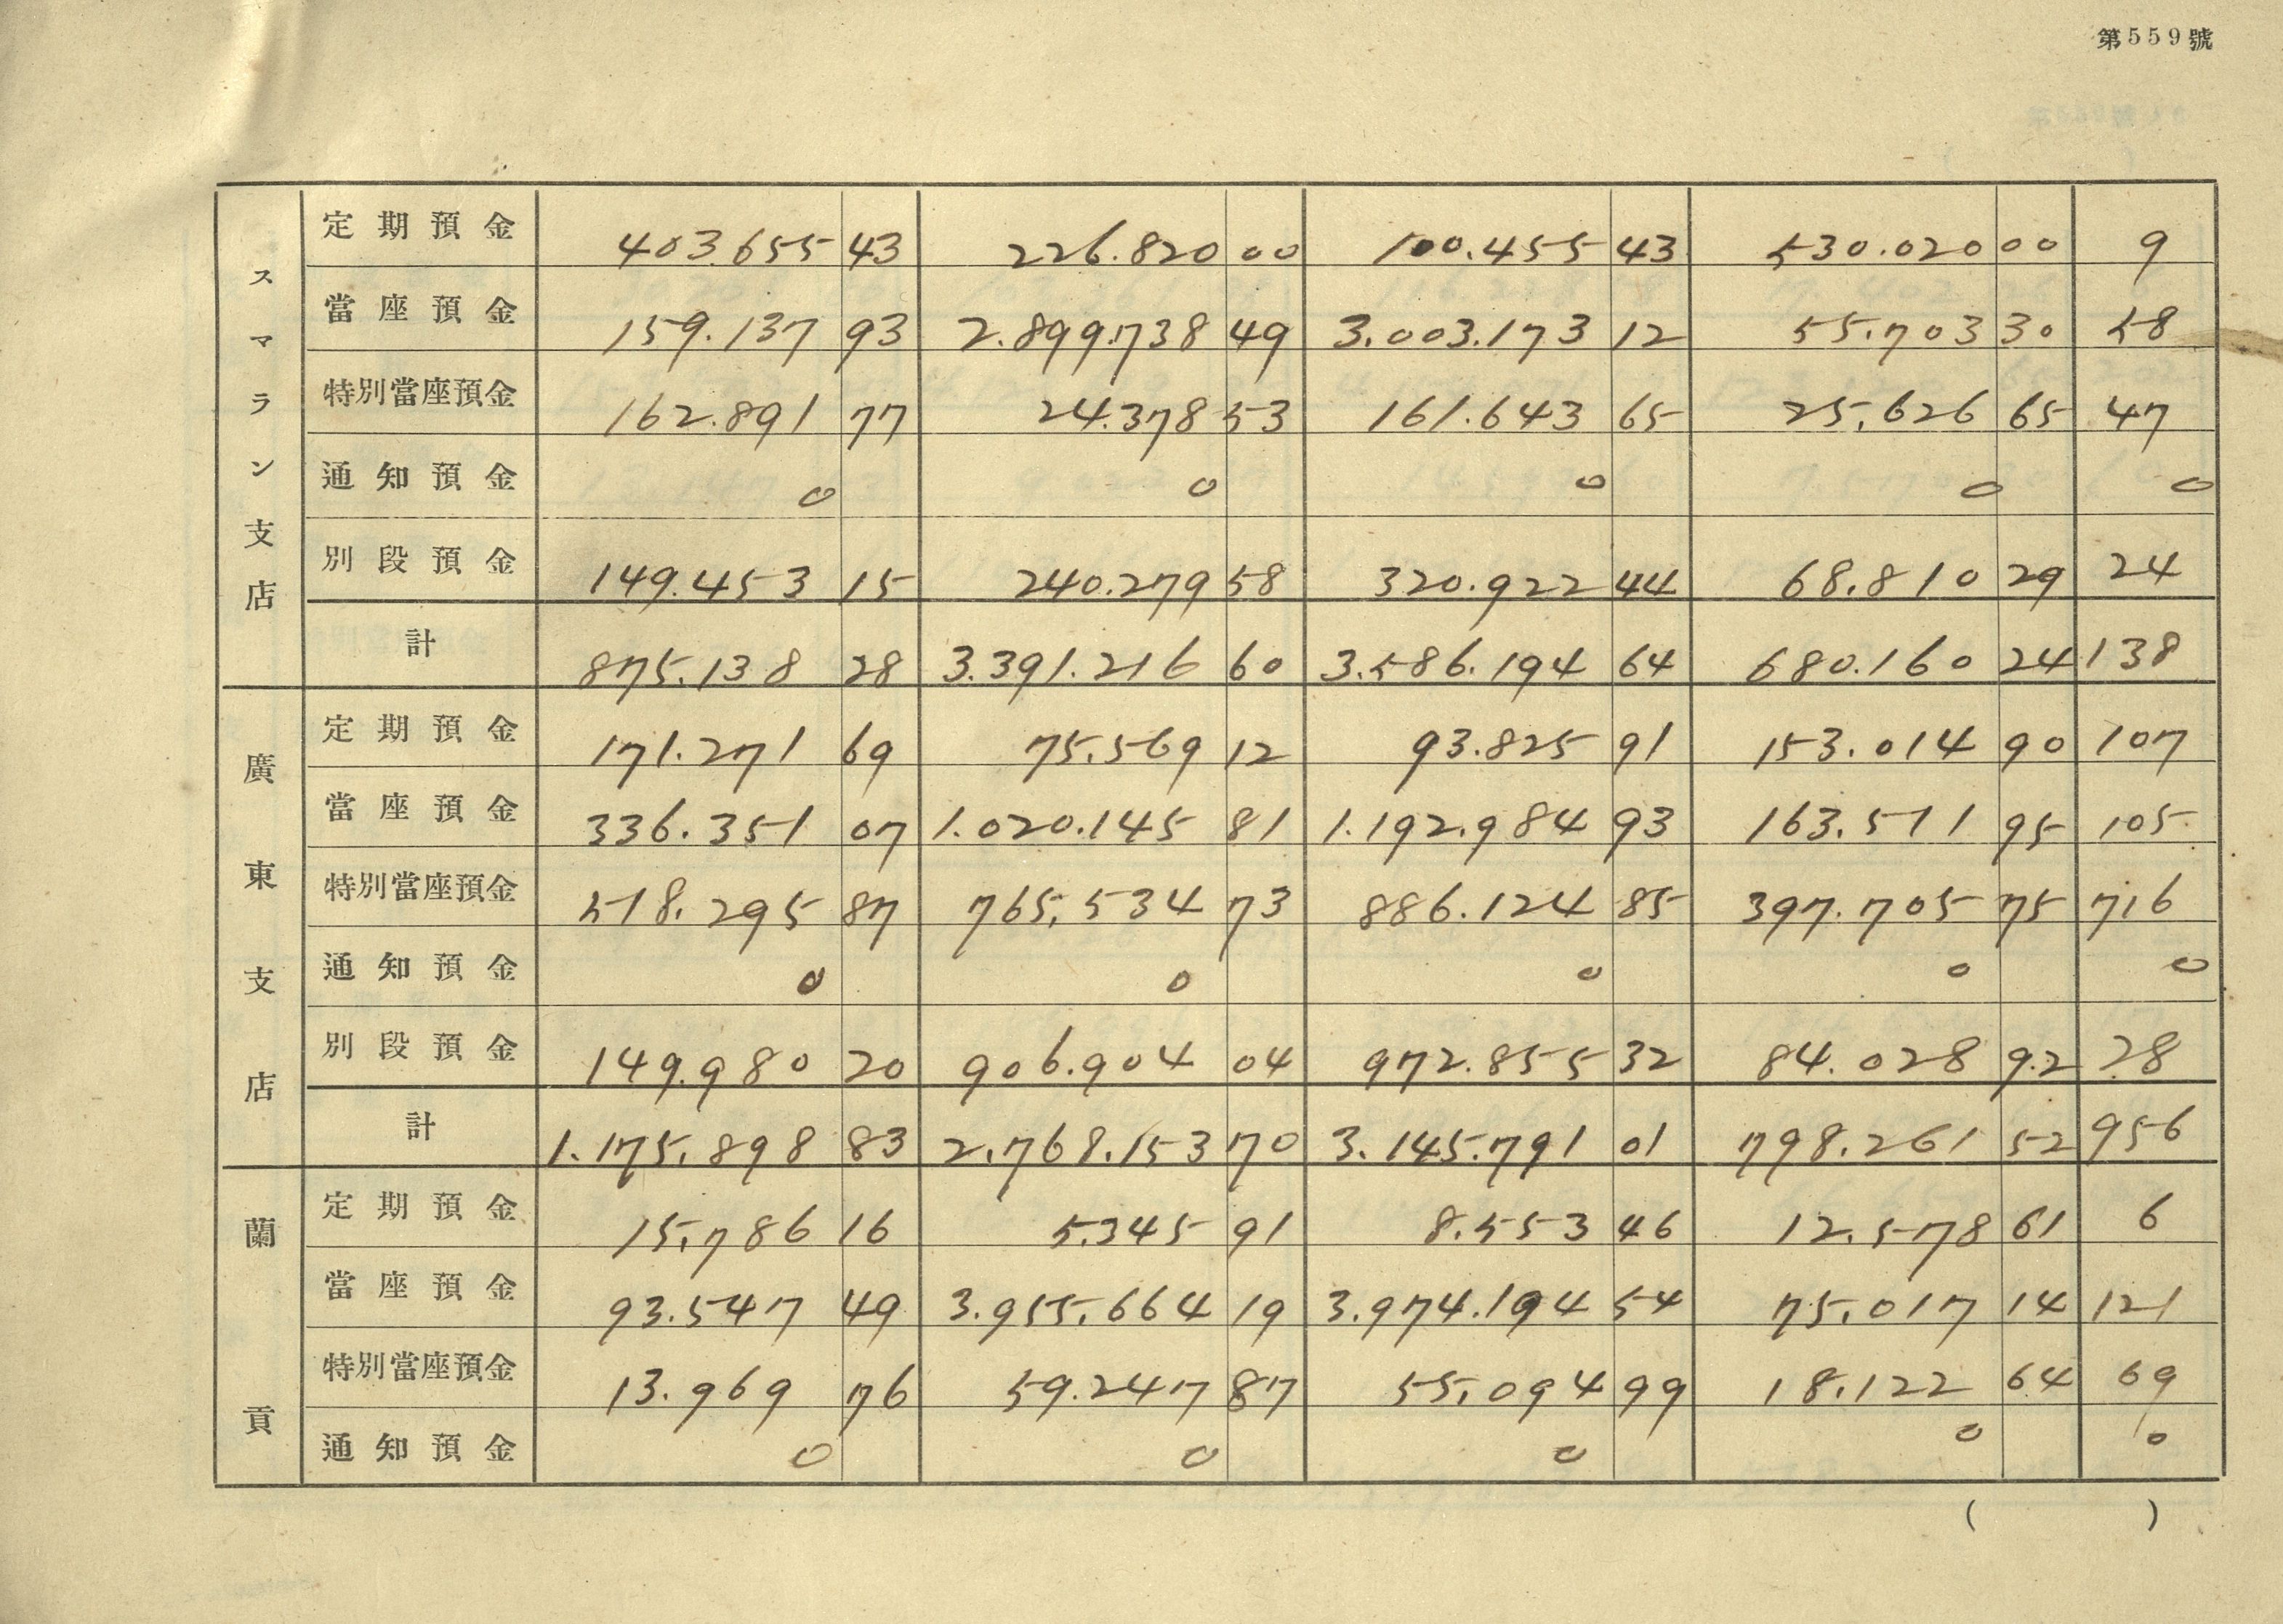 第559號
スマラン支店
定期預金 403.655 43 226.820 00 100.455 43 530.020 00 9
當座預金 159.137 93 2.899.738 49 3.003.173 12 55.703 30 58
特別當座預金 162.891 77 24.378 53 161.643 65 25.626 65 47
通知預金 0 0 0 0 0
別段預金 149.453 15 240.279 58 320.922 44 68.810 29 24
計 875.138 28 3.391.216 60 3.586.194 64 680.160 24 138
廣東支店
定期預金 171.271 69 75.569 12 93.825 91 153.014 90 107
當座預金 336.351 07 1.020.145 81 1.192.984 93 163.511 95 105
特別當座預金 518.295 87 765.534 73 886.124 85 397.705 75 716
通知預金 0 0 0 0 0
別段預金 149.980 20 906.904 04 972.855 32 84.028 92 28
計 1.175.898 83 2.768.153 70 3.145.791 01 798.261 52 956
蘭貢
定期預金 15.786 16 5.345 91 8.553 46 12.578 61 6
當座預金 93.547 49 3.955.664 19 3.974.194 54 75.017 14 121
特別當座預金 13.969 76 59.247 87 55.094 99 18.122 64 69
通知預金 0 0 0 0 0
( )